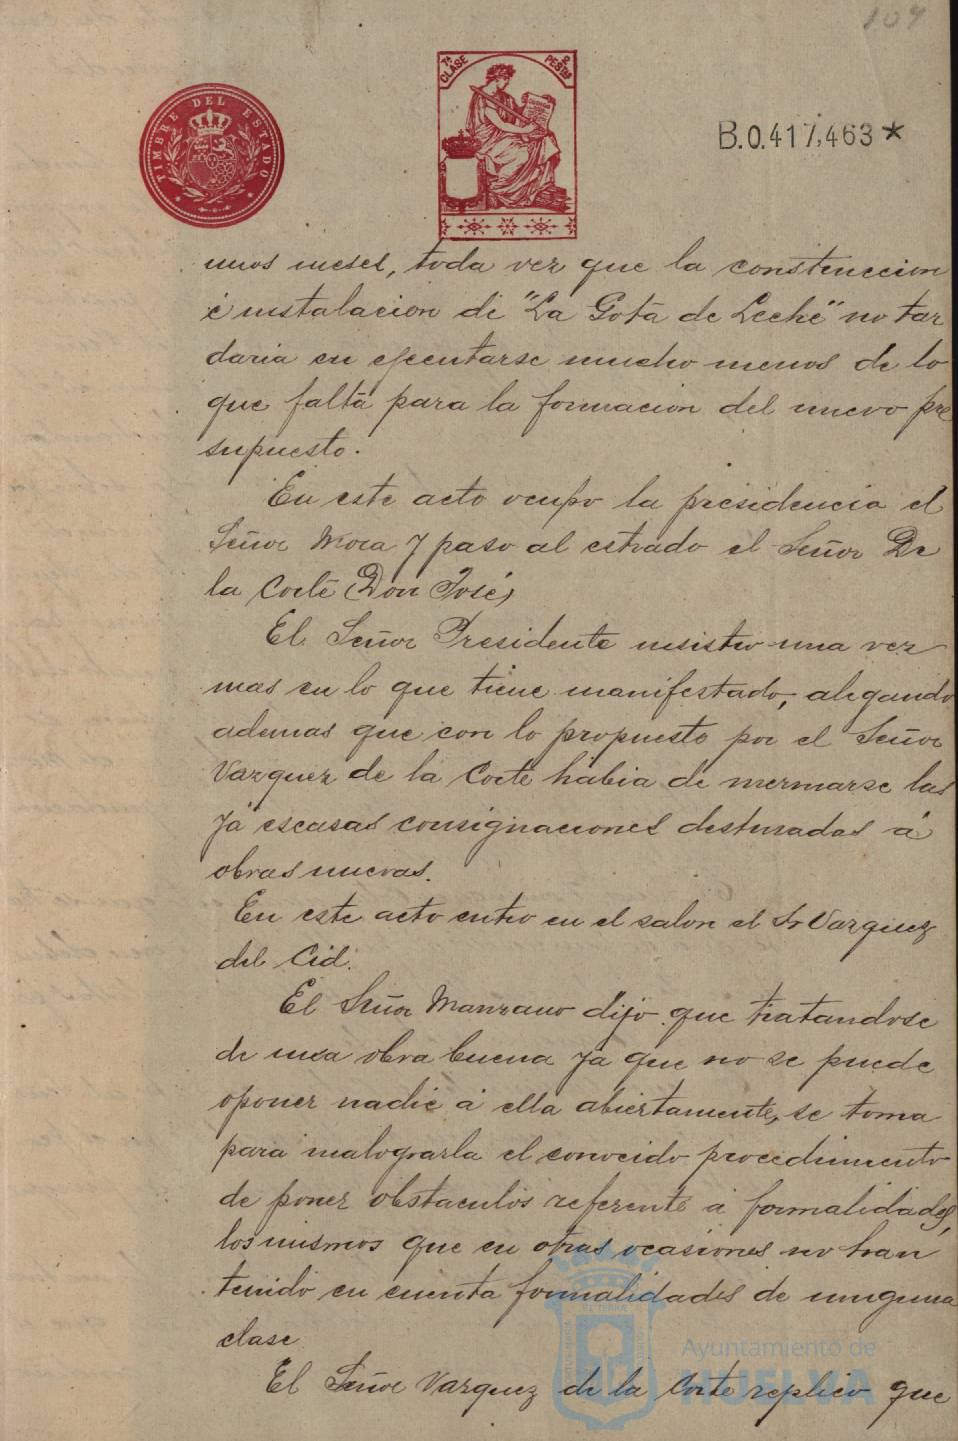 107
TIMBRE DEL ESTADO
7ª CLASE
2 PESETAS
B.0.417,463*
unos meses, toda vez que la construccion
é instalacion de "La Gota de Leche" no tar
daria en ejecutarse mucho menos de lo
que falta para la formacion del nuevo pre
supuesto.
En este acto ocupo la presidencia el
Señor Mora y paso al estrado el Señor De
la Corte (Don José)
El Señor Presidente insistio una vez
mas en lo que tiene manifestado, alegando
ademas que con lo propuesto por el Señor
Vazquez de la Corte habia de mermarse las
ya escasas consignaciones destinadas á
obras nuevas.
En este acto entro en el salon el Sr Vazquez
del Cid.
El Señor Manzano dijo que tratandose
de una obra buena ya que no se puede
oponer nadie á ella abiertamente, se toma
para malograrla el conocido procedimiento
de poner obstaculos referente á formalidades,
los mismos que en otras ocasiones no han
tenido en cuenta formalidades de ninguna
clase
El Señor Vazquez de la Corte replico que
Ayuntamiento de
HUELVA